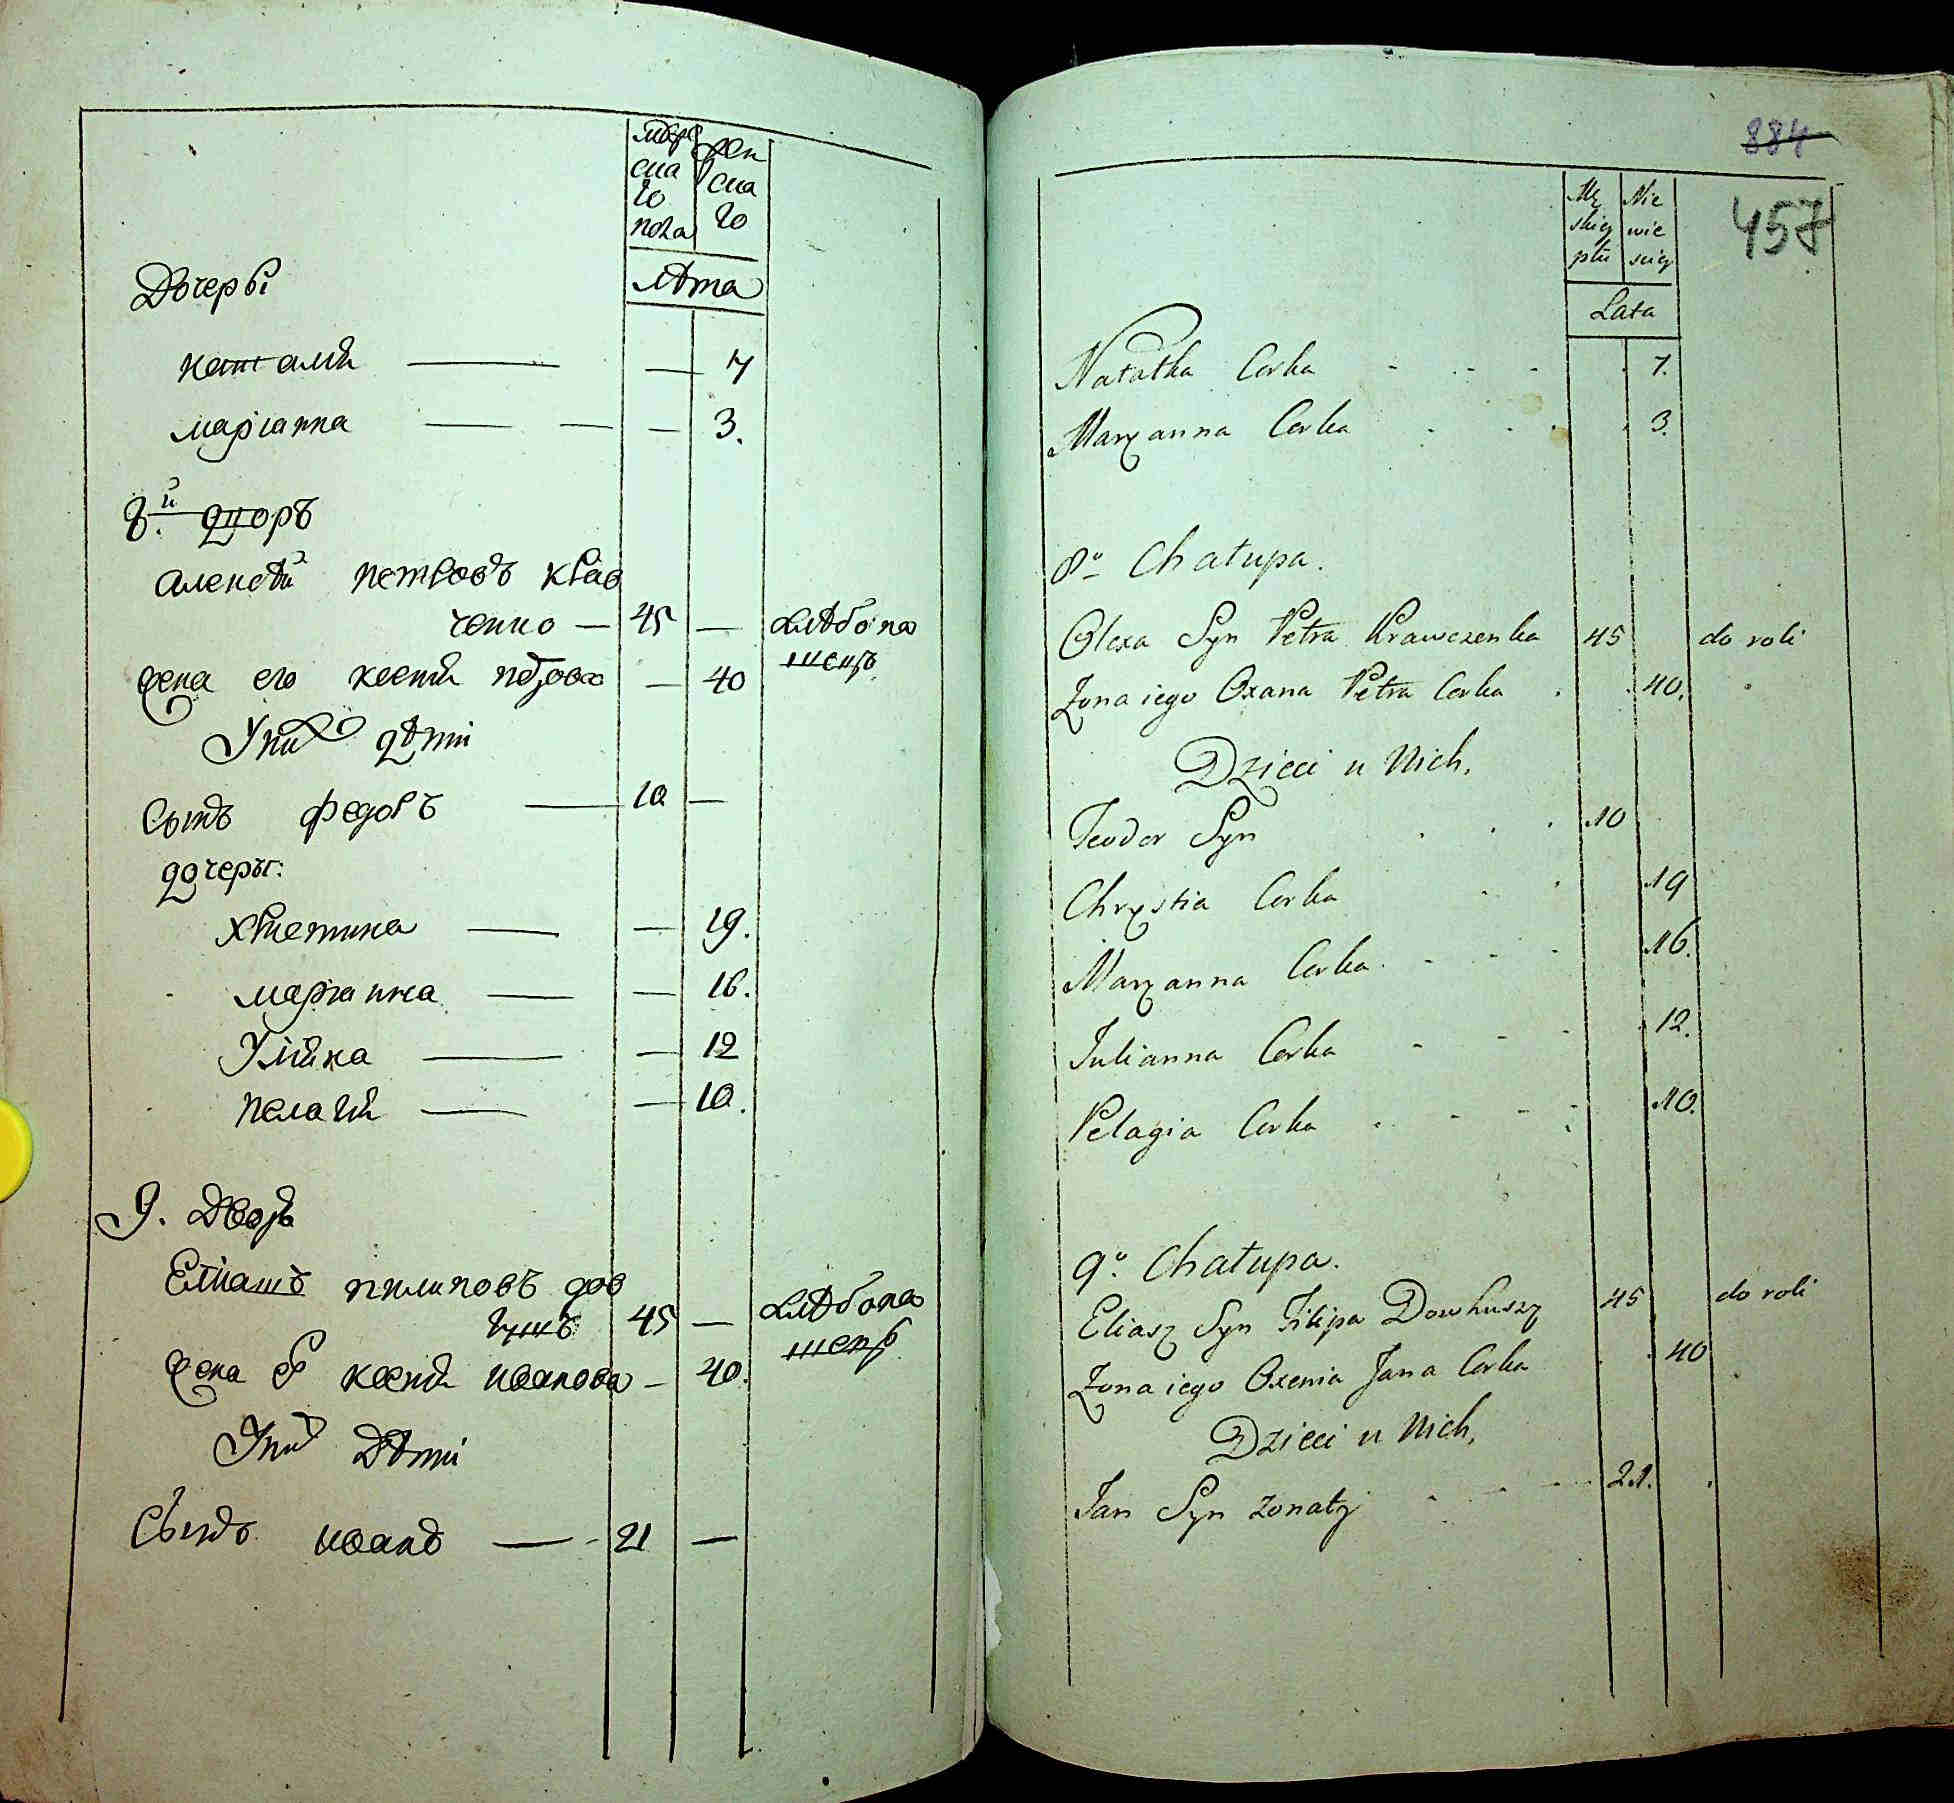 мужескаго пола
женскаго
лѣта
Дочеры
наталій — — 7
маріанна — — — 3.
8.й дворъ
алексѣй петровъ крав
ченко — 45 — хлѣбопа
шецъ
жена его ксенія петрова — 40
У них дѣти
Сынъ федоръ — 10 —
дочеры:
христина — — 19.
маріанна — — 16.
Улiяна — — 12
пелагія — — 10.
9. Дворъ
Еліашъ пилиповъ дов
гушъ 45 — хлѣбопа
шецъ
жена его ксенія иванова — 40.
У них Дѣти
Сынъ иванъ — 21 —
884
457
Mę Nie
skiey wie
płci sciey
Lata
Natalka Corka 7.
Maryanna Corka 3.
8o Chałupa.
Olexa Syn Petra Krawczenka 45 do roli
Zona iego Oxana Petra Corka 40.
Dzieci u Nich,
Teodor Syn 10
Chrystia Corka 19
Maryanna Corka 16.
Julianna Corka 12.
Pelagia Corka 10.
9o Chałupa.
Eliasz Syn Filipa Dowhuszy 45 do roli
Zona iego Oxenia Jana Corka 40
Dzieci u Nich,
Jan Syn zonaty 21.